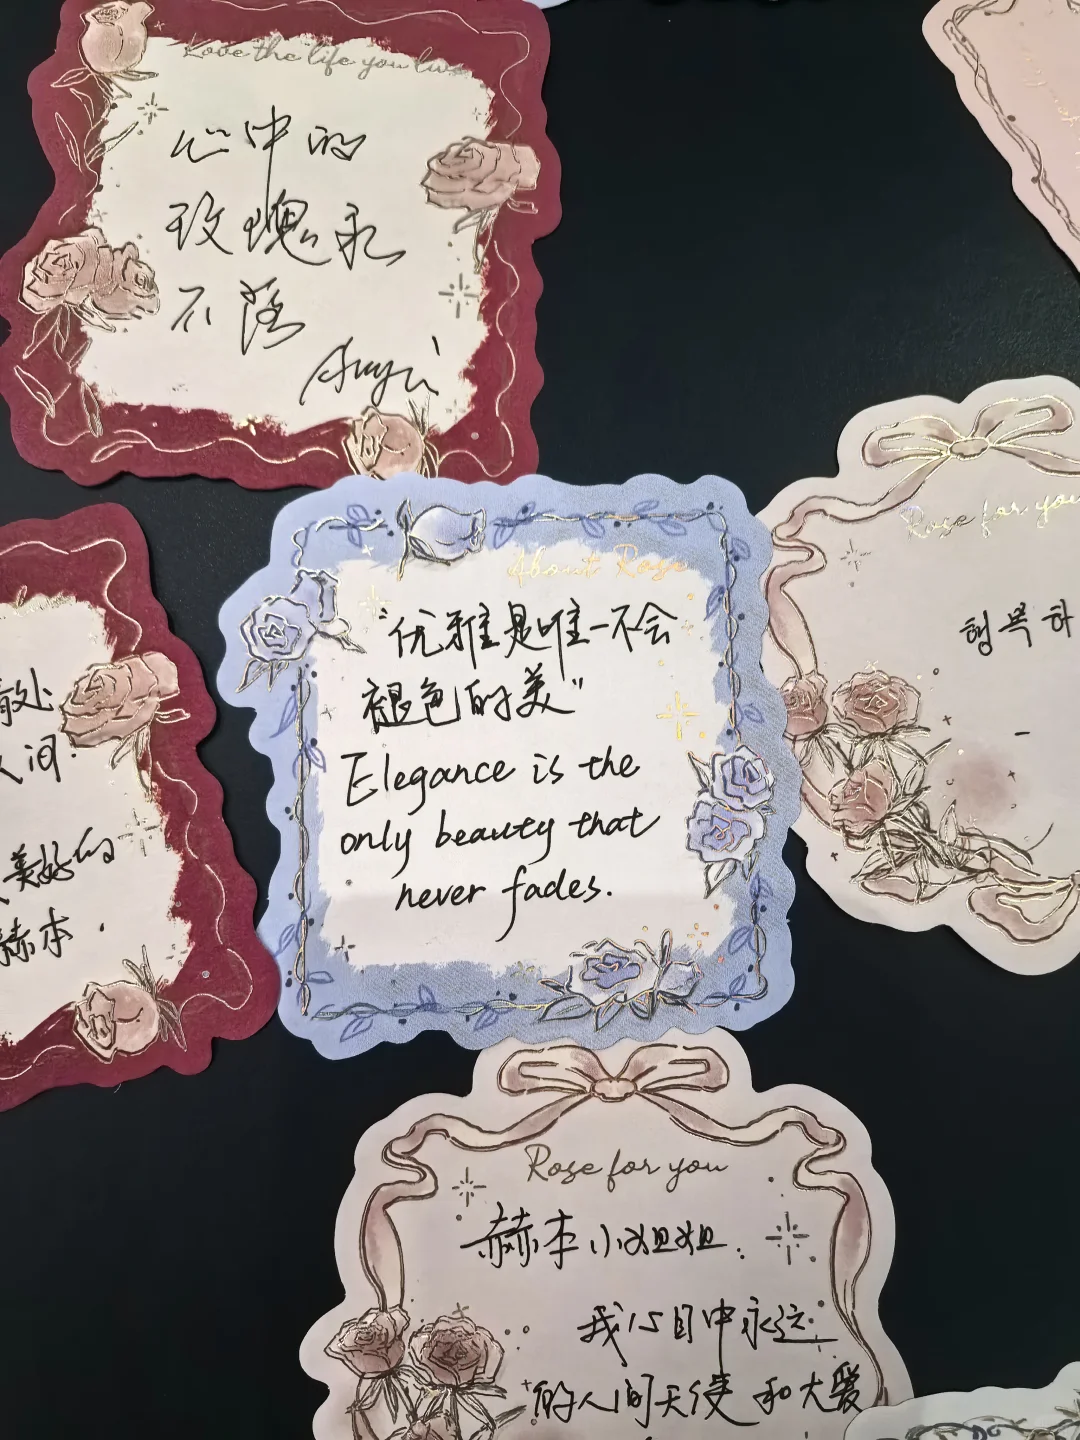 Love the life you live
心中的
玫瑰永
不落
处
人间.
美好的
赫本.
About Rose
“优雅是唯一不会
褪色的美”
Elegance is the
only beauty that
never fades.
Rose for you
행복하
Rose for you
赫本小姐姐.
我心目中永远
的人间天使和大爱